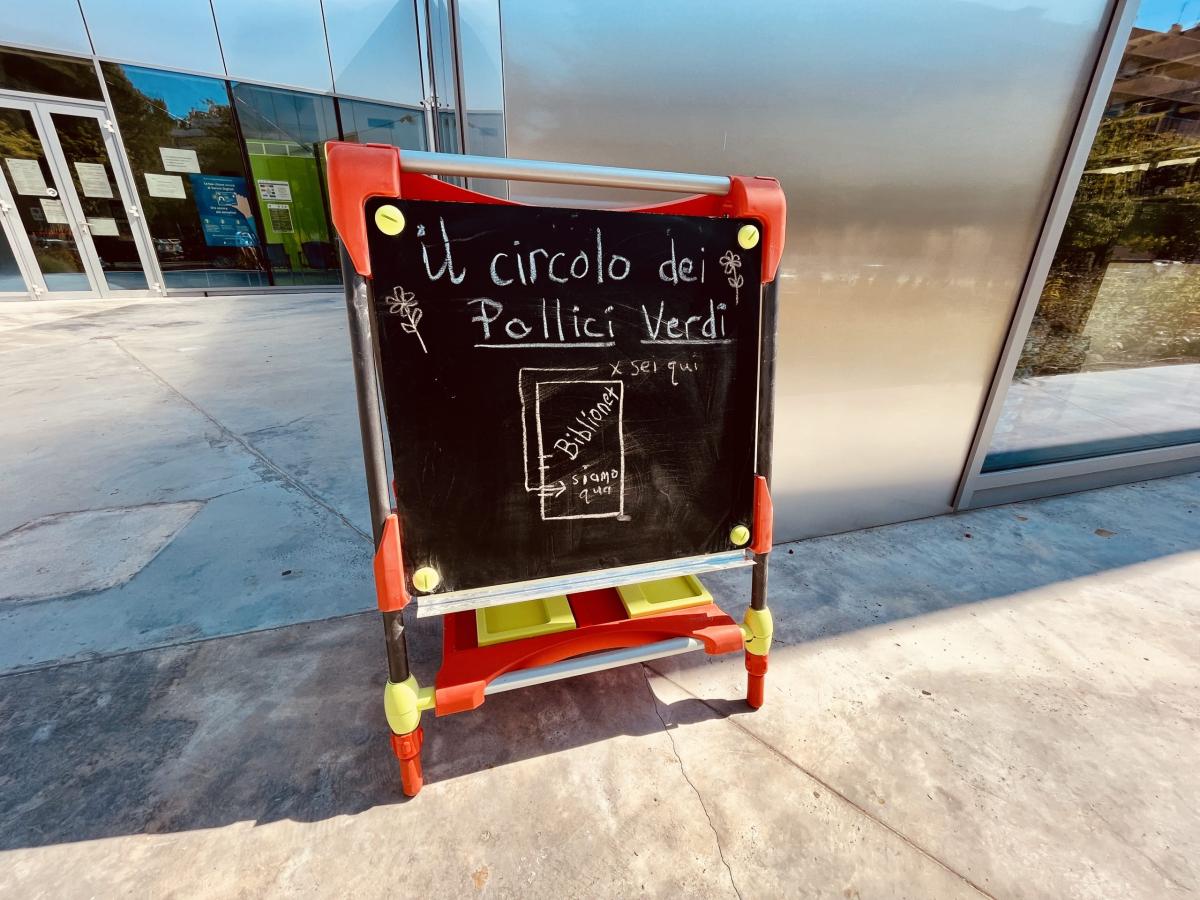 il circolo dei
Pallici Verdi
x sei qui
Biblionet
siamo
qua